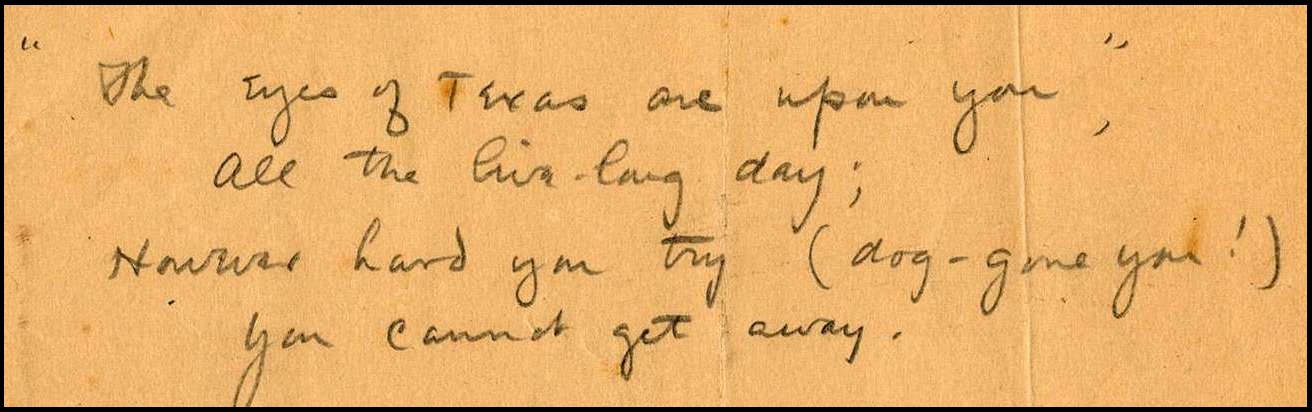 "The Eyes of Texas are upon you",
All the live-long day;
However hard you try (dog-gone you!)
You cannot get away.